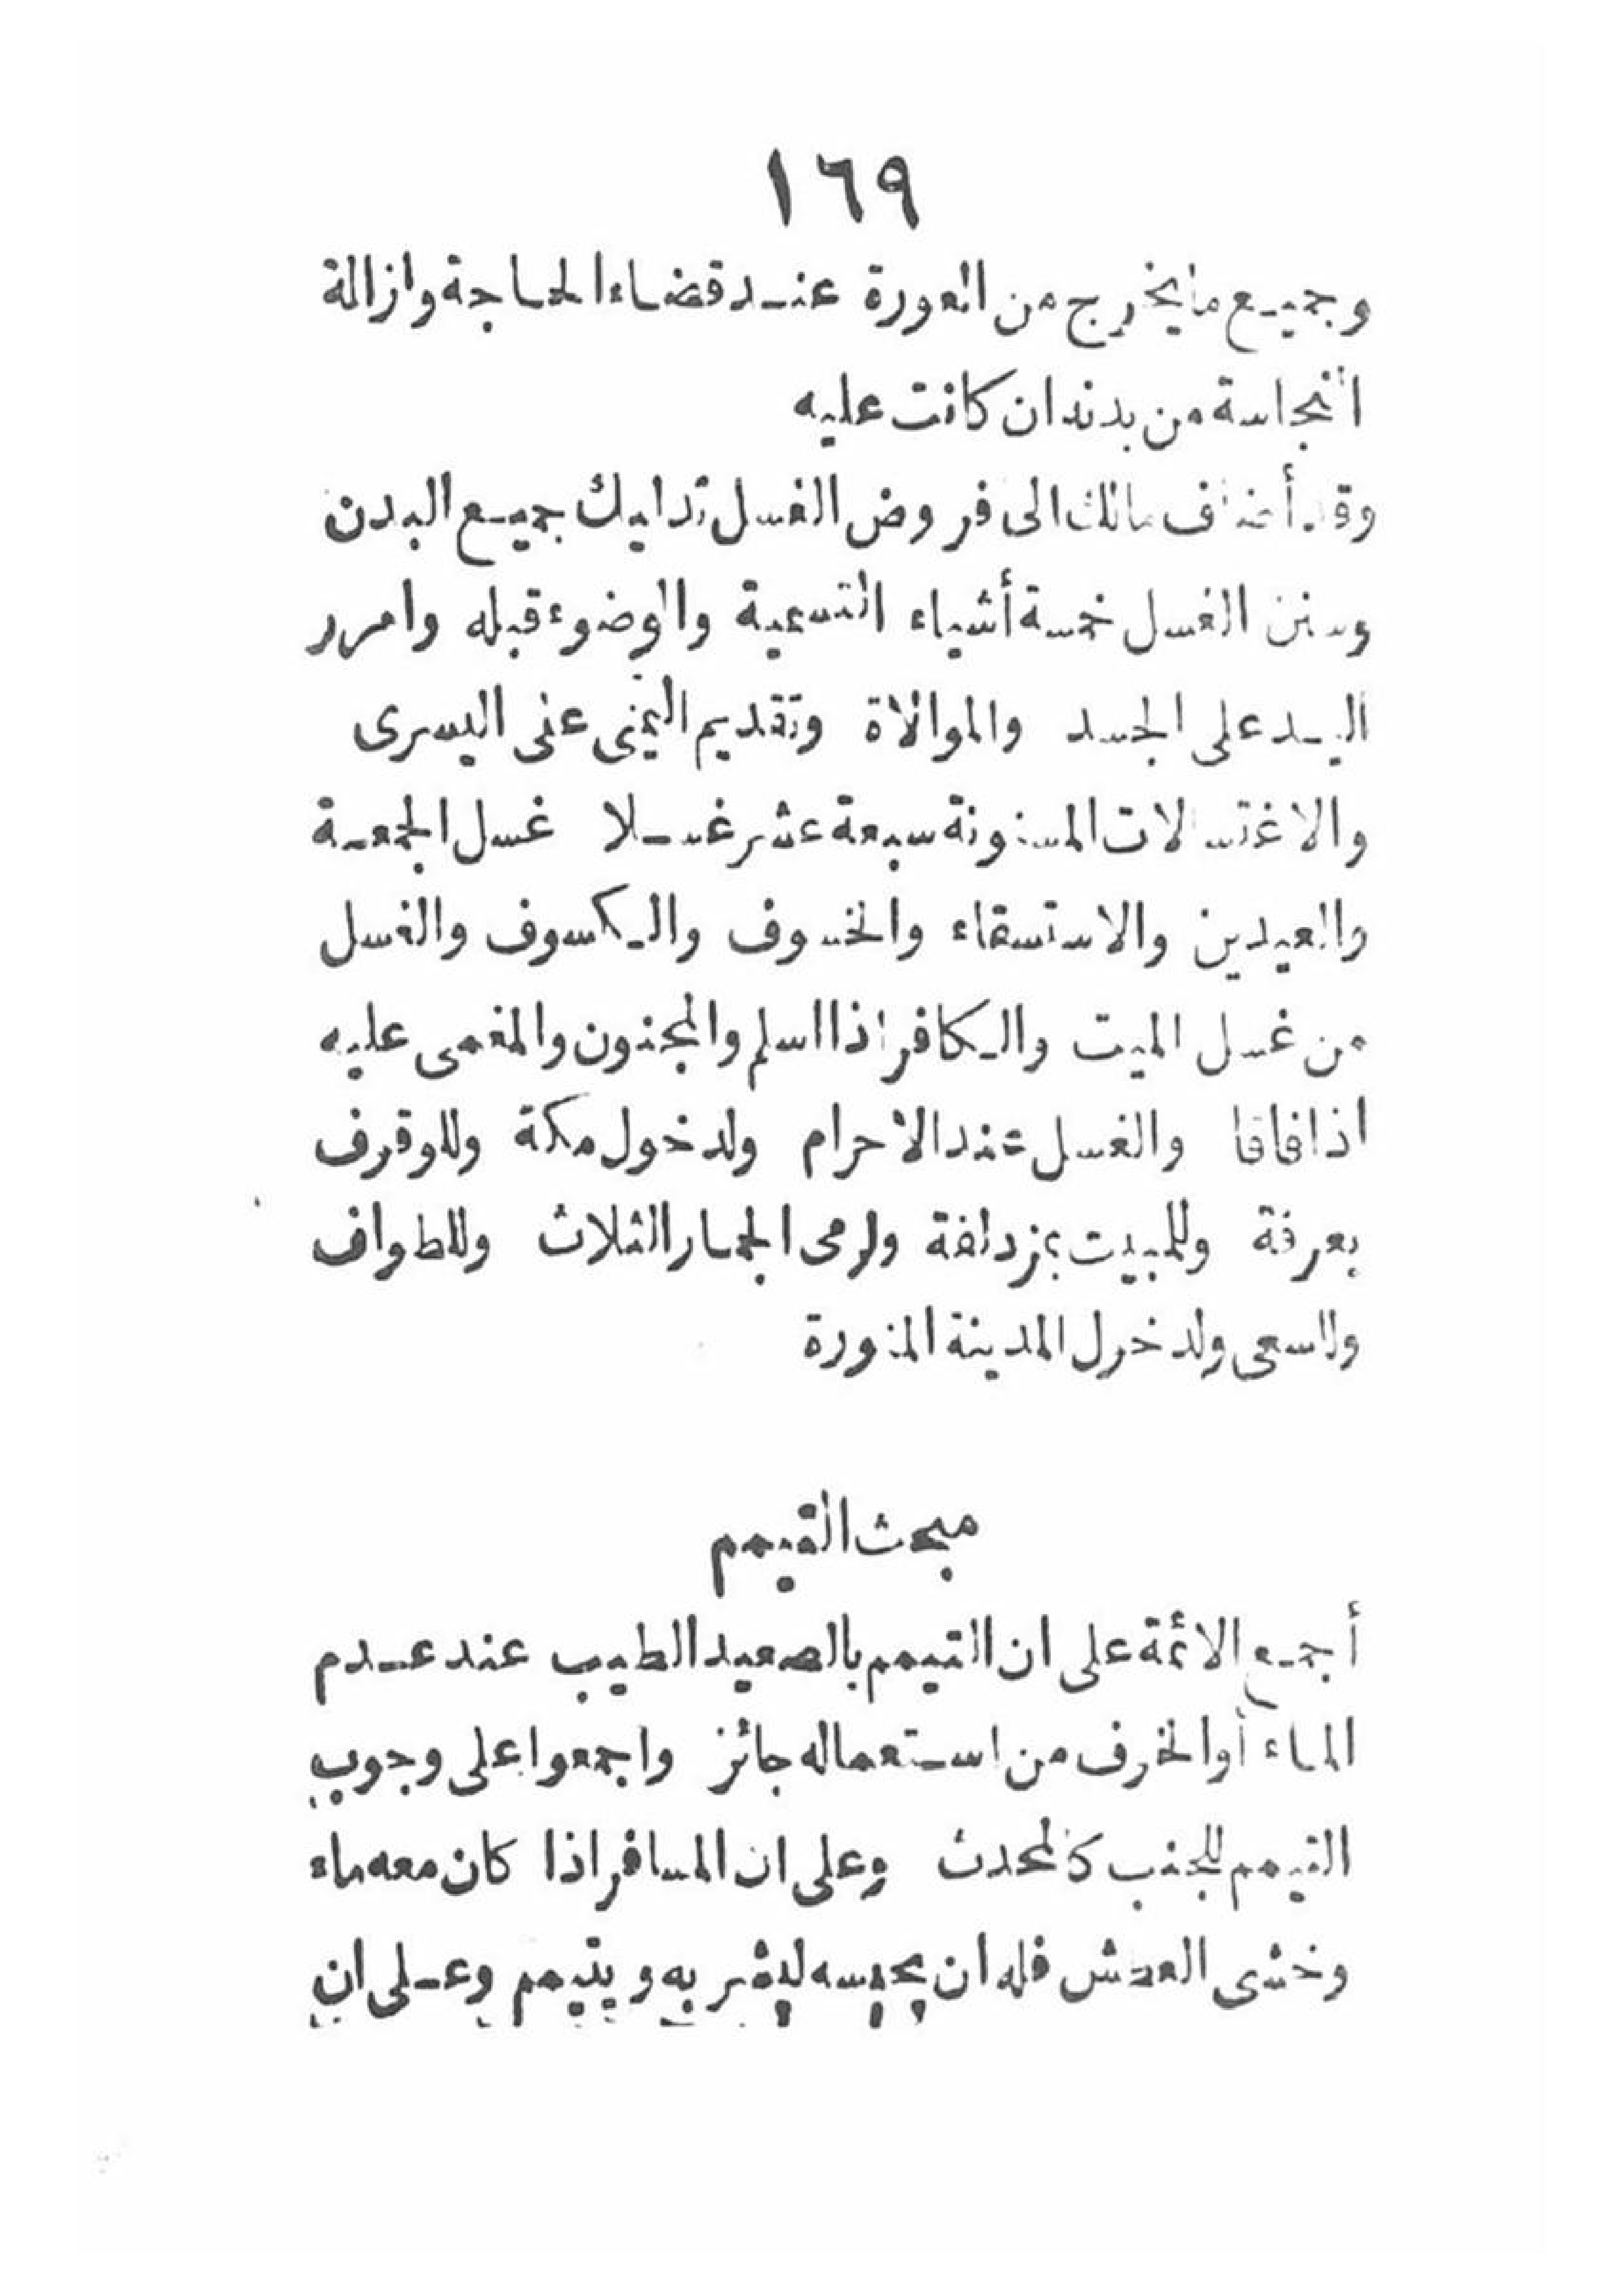 ١٦٩
وجميع ما يخرج من العورة عند قضاء الحاجة وازالة
النجاسة من بدنه ان كانت عليه
وقد أضاف مالك الى فروض الغسل تدليك جميع البدن
وسنن الغسل خمسة أشياء التسمية والوضوء قبله وامرر
اليد على الجسد والموالاة وتقديم اليمنى على اليسرى
والاغتسالات المسنونة سبعة عشر غسلا غسل الجمعة
والعيدين والاستسقاء والخسوف والكسوف والغسل
من غسل الميت والكافر اذا اسلم والمجنون والمغمى عليه
اذا افاقا والغسل عند الاحرام ولدخول مكة وللوقوف
بعرفة وللمبيت بمزدلفة ولرمى الجمار الثلاث وللطواف
وللسعى ولدخول المدينة المنورة
مبحث التيمم
أجمع الائمة على ان التيمم بالصعيد الطيب عند عدم
الماء أو الخوف من استعماله جائز واجمعوا على وجوب
التيمم للجنب كالمحدث وعلى ان المسافر اذا كان معه ماء
وخشى العطش فله ان يحبسه ليشربه ويتيمم وعلى ان